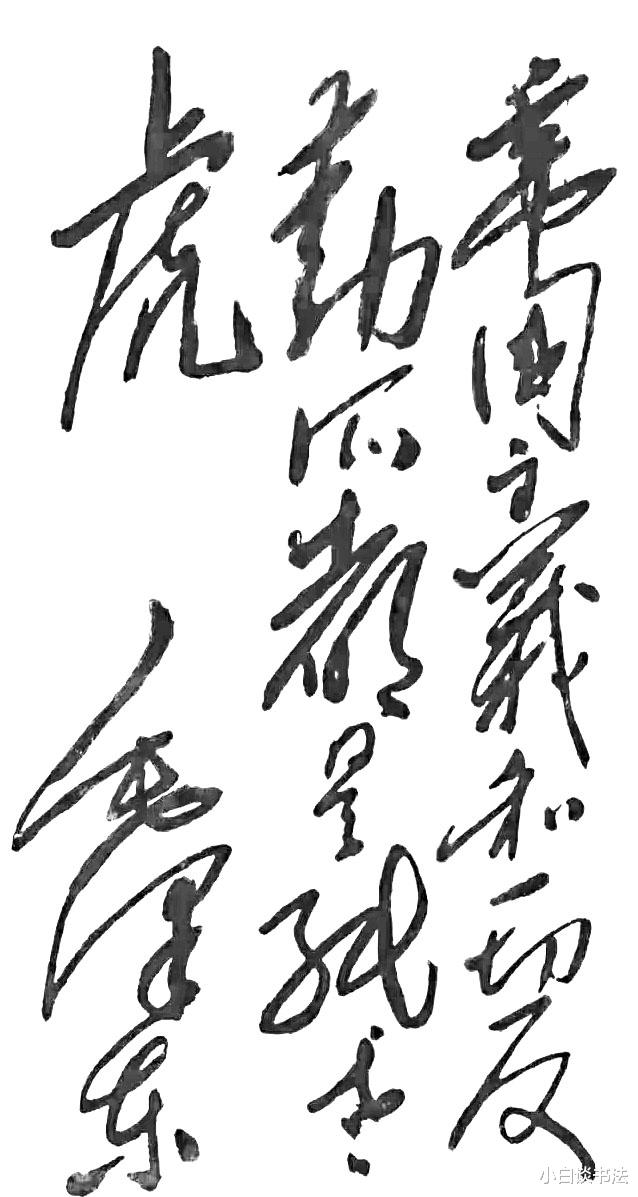 帝国主義和一切反
動派都是纸老
虎
毛泽东
小白谈书法